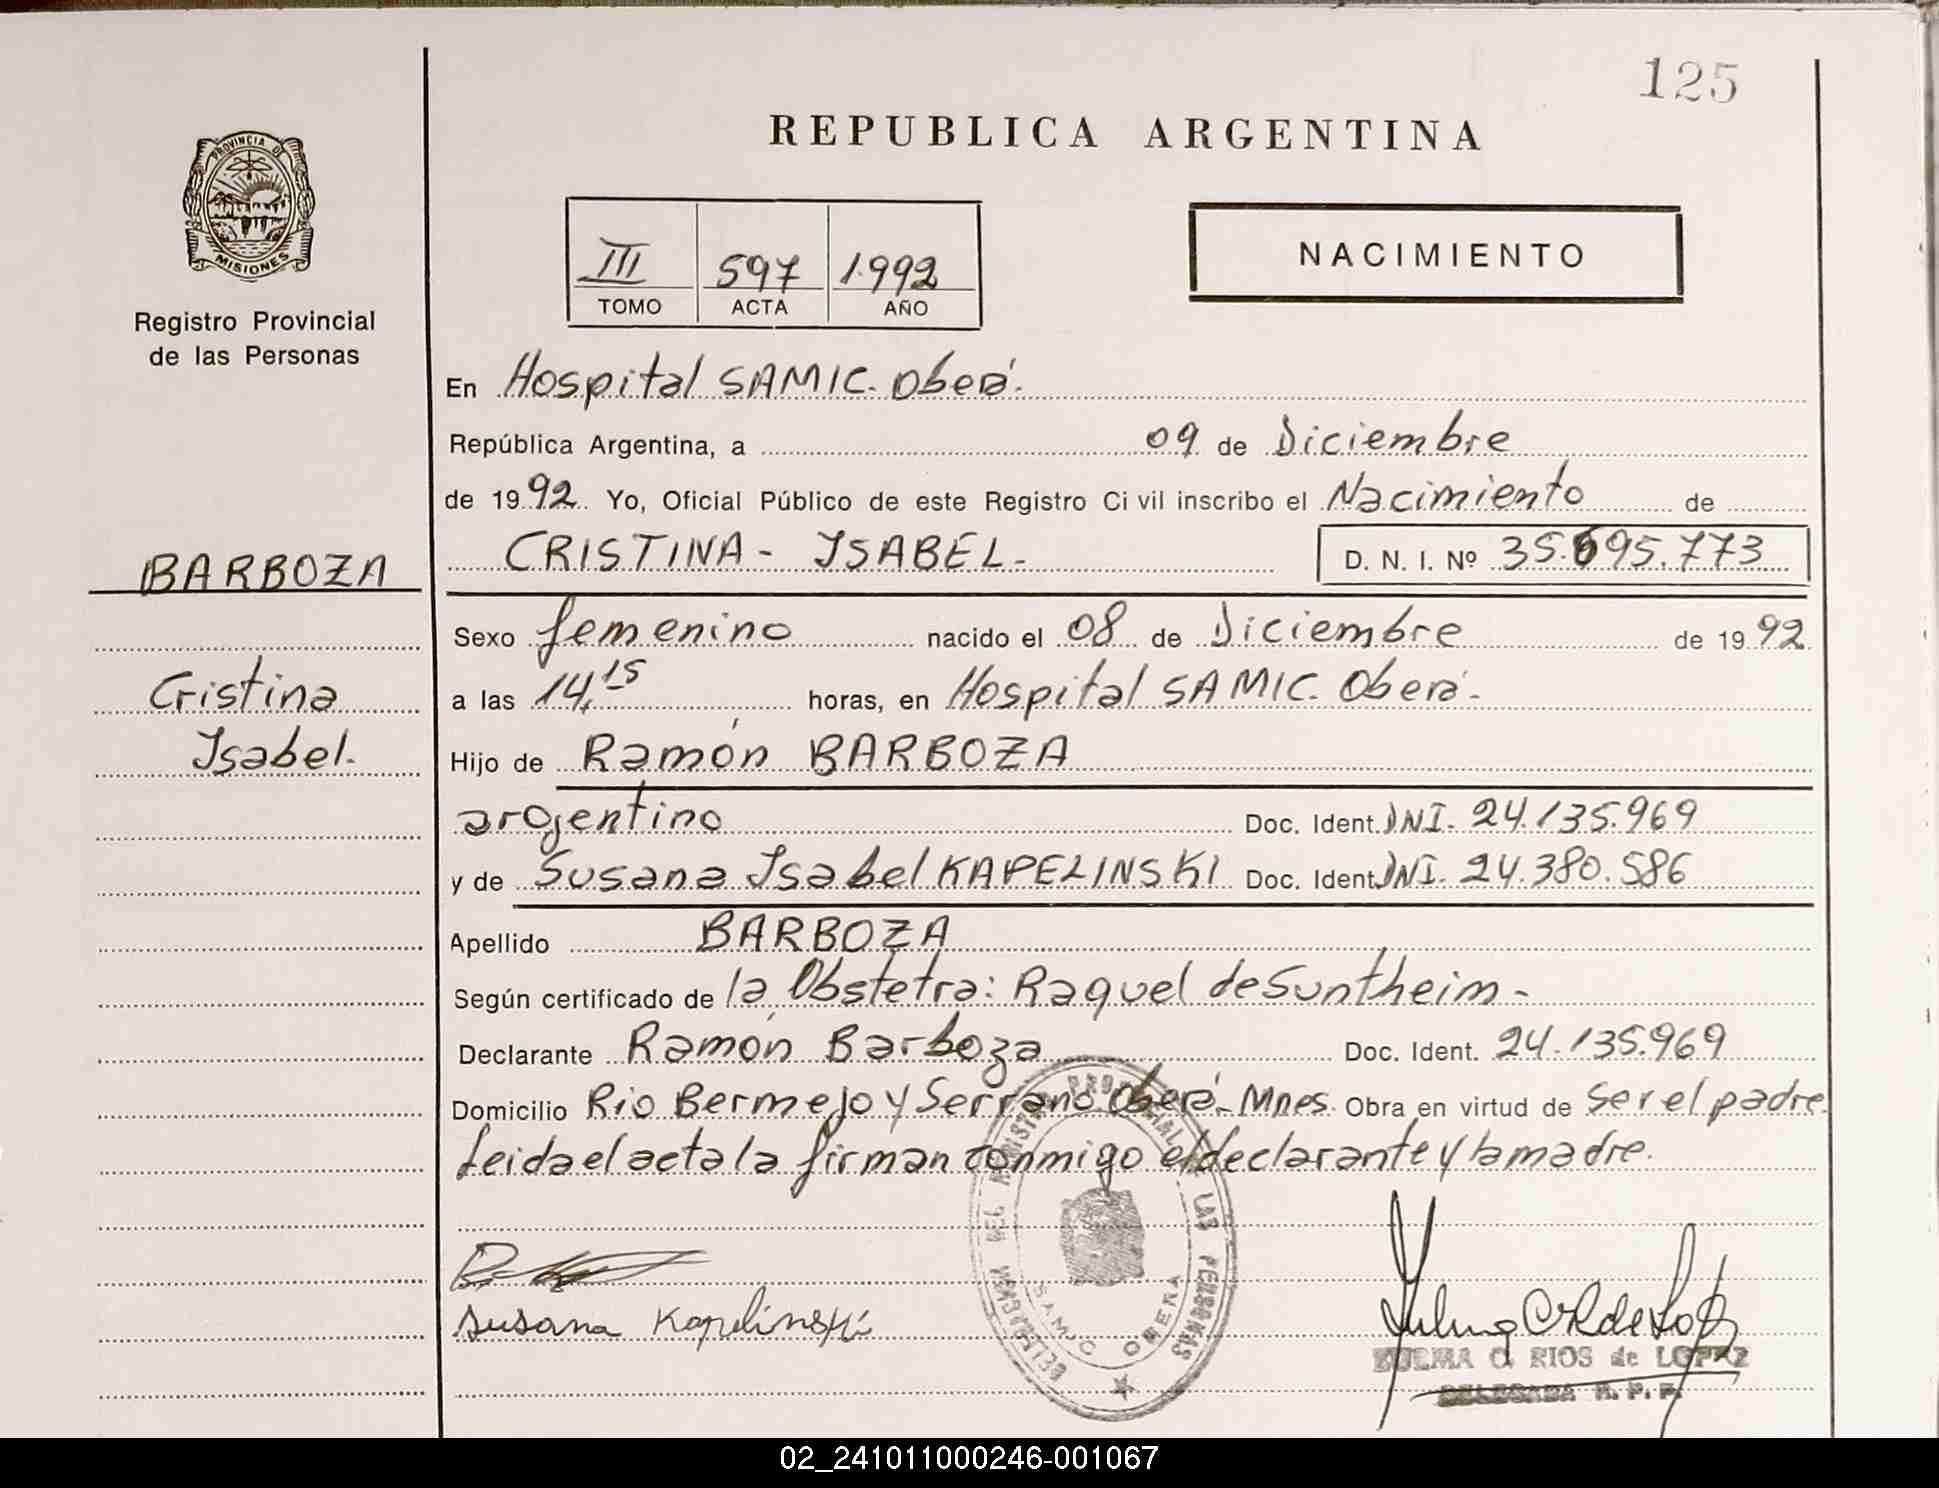 125
REPUBLICA ARGENTINA
PROVINCIA DE
MISIONES
Registro Provincial
de las Personas
III 597 1.992
TOMO ACTA AÑO
NACIMIENTO
En Hospital SAMIC. Oberá.
República Argentina, a 09 de Diciembre
de 1992. Yo, Oficial Público de este Registro Civil inscribo el Nacimiento de
BARBOZA
CRISTINA - ISABEL - D. N. I. Nº 35.695.773
Sexo femenino nacido el 08 de Diciembre de 1992
Cristina
Isabel.
a las 14,15 horas, en Hospital SAMIC. Oberá -
Hijo de Ramón BARBOZA
argentino Doc. Ident. DNI. 24.135.969
y de Susana Isabel KAPELINSKI Doc. Ident. DNI. 24.380.586
Apellido BARBOZA
Según certificado de la Obstetra: Raquel de Suntheim -
Declarante Ramón Barboza Doc. Ident. 24.135.969
Domicilio Rio Bermejo y Serrano Oberá - Mnes. Obra en virtud de ser el padre
Leida el acta la firman conmigo el declarante y la madre.
DELEGACION DEL REGISTRO PROVINCIAL DE LAS PERSONAS
SAMIC OBERA
Susana Kapelinski
ZULMA C. RIOS de LOPEZ
DELEGADA R. P. P.
02_241011000246-001067